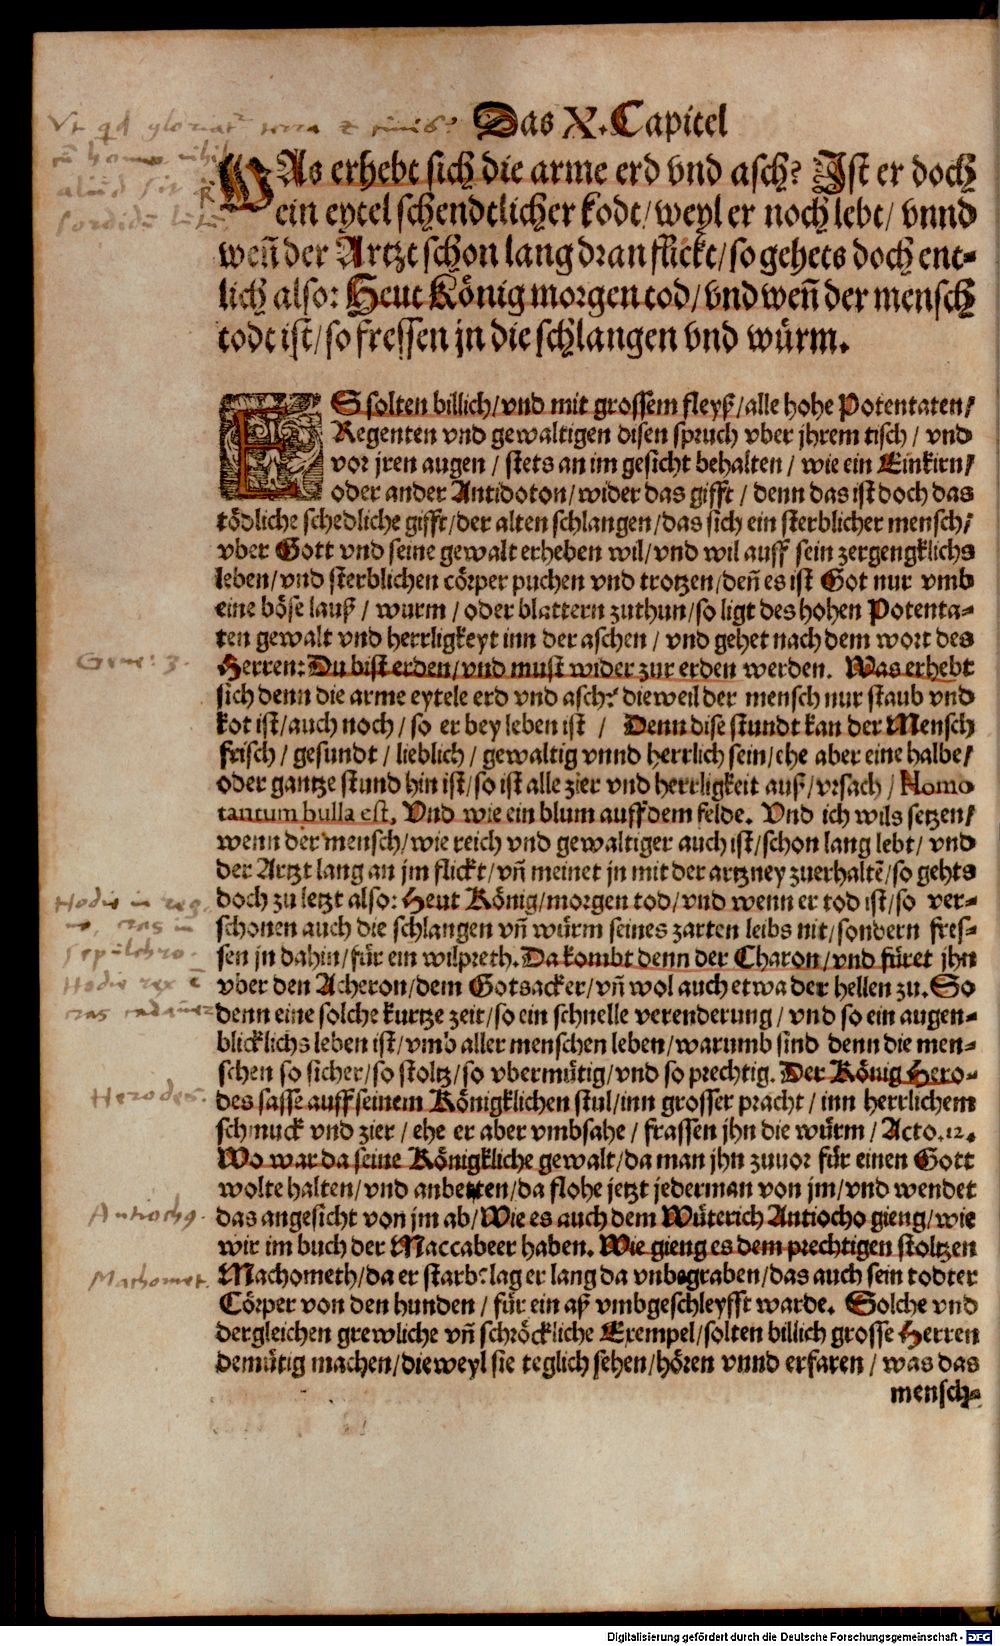 Das X. Capitel
WAs erhebt sich die arme erd vnd asch? Ist er doch
ein eytel schendtlicher kodt/ weyl er noch lebt/ vnnd
weñ der Artzt schon lang dran flickt/ so gehets doch ent-
lich also: Heut König morgen tod/ vnd weñ der mensch
todt ist/ so fressen jn die schlangen vnd würm.
ES solten billich/ vnd mit grossem fleyß/ alle hohe Potentaten/
Regenten vnd gewaltigen disen spruch vber jhrem tisch / vnd
vor jren augen / stets an im gesicht behalten / wie ein Einkirn/
oder ander Antidoton/ wider das gifft / denn das ist doch das
tödliche schedliche gifft/ der alten schlangen/ das sich ein sterblicher mensch/
vber Gott vnd seine gewalt erheben wil/ vnd wil auff sein zergengklichs
leben/ vnd sterblichen cörper puchen vnd trotzen/ deñ es ist Got nur vmb
eine böse lauß / wurm / oder blattern zuthun/ so ligt des hohen Potenta-
ten gewalt vnd herrligkeyt inn der aschen / vnd gehet nach dem wort des
Herren: Du bist erden/ vnd must wider zur erden werden. Was erhebt
sich denn die arme eytele erd vnd asch? dieweil der mensch nur staub vnd
kot ist/ auch noch / so er bey leben ist / Denn dise stundt kan der Mensch
frisch / gesundt / lieblich / gewaltig vnnd herrlich sein/ ehe aber eine halbe/
oder gantze stund hin ist/ so ist alle zier vnd herrligkeit auß/ vrsach / Homo
tantum bulla est, Vnd wie ein blum auff dem felde. Vnd ich wils setzen/
wenn der mensch/ wie reich vnd gewaltiger auch ist/ schon lang lebt/ vnd
der Artzt lang an jm flickt/ vñ meinet jn mit der artzney zuerhaltẽ/ so gehts
doch zu letzt also: Heut König/ morgen tod/ vnd wenn er tod ist/ so ver-
schonen auch die schlangen vñ würm seines zarten leibs nit/ sondern fres-
sen jn dahin/ für ein wilpreth. Da kombt denn der Charon/ vnd füret jhn
vber den Acheron/ dem Gotsacker/ vñ wol auch etwa der hellen zu. So
denn eine solche kurtze zeit/ so ein schnelle verenderung / vnd so ein augen-
blicklichs leben ist/ vmb aller menschen leben/ warumb sind denn die men-
schen so sicher/ so stoltz/ so vbermütig/ vnd so prechtig. Der König Hero-
des sasse auff seinem Königklichen stul/ inn grosser pracht / inn herrlichem
schmuck vnd zier / ehe er aber vmbsahe / frassen jhn die würm / Acto. 12.
Wo war da seine Königkliche gewalt/ da man jhn zuuor für einen Gott
wolte halten/ vnd anbetten/ da flohe jetzt jederman von jm/ vnd wendet
das angesicht von jm ab/ Wie es auch dem Wüterich Antiocho gieng/ wie
wir im buch der Maccabeer haben. Wie gieng es dem prechtigen stoltzen
Machometh/ da er starb? lag er lang da vnbegraben/ das auch sein todter
Cörper von den hunden / für ein aß vmbgeschleyfft warde. Solche vnd
dergleichen grewliche vñ schröckliche Exempel/ solten billich grosse Herren
demütig machen/ dieweyl sie teglich sehen/ hören vnnd erfaren / was das
mensch-
Gene: 3.
Hodie in reg
no, cras in
sepulchro.
Hodie rex
cras cadauer
Herodes.
Antioch9.
Machomet.
Digitalisierung gefördert durch die Deutsche Forschungsgemeinschaft - DFG